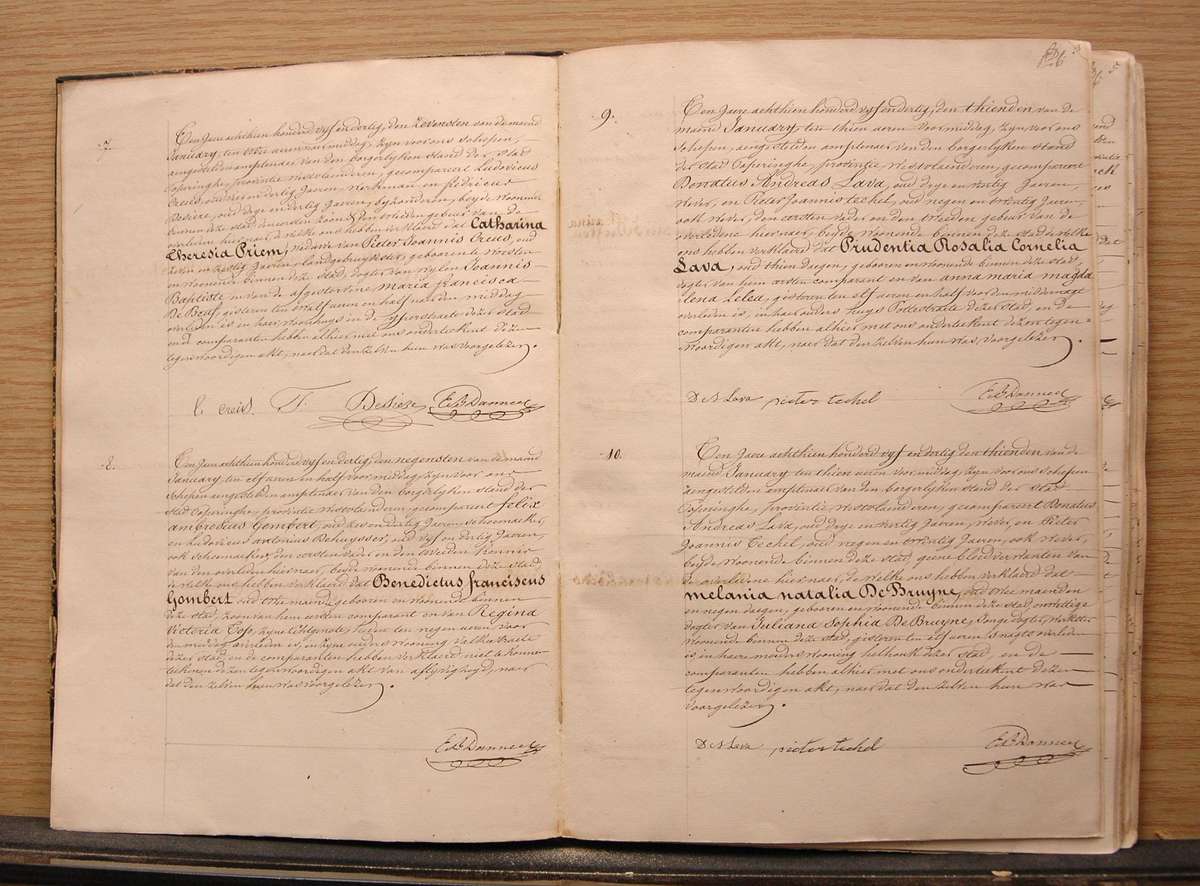 7.
Ten Jaere achthien honderd vyf en dertig, den zevensten van de maend
January, ten twee ueren naer middag, zyn voor ons schepen,
aengestelden amptenaer van den borgerlyken stand der stad
Poperinghe, provintie Westvlaenderen, gecompareert Ludovicus
Creus, oud zes en dertig Jaeren, werkman en
Desiere, oud dryen dertig Jaeren, byzonderen, beyde woonende
binnen deze stad, den tweeden gebuer van de
overleden hier naer, de welke ons hebben verklaerd dat Catharina
Theresia Priem, weduwe van Pieter Joannis Creus, oud
zeven en zestig Jaeren, gebooren te
en woonende binnen deze stad, dogter van wylen Joannis
Baptiste en van de afgestorvene maria francisca
De Beuf, gisteren ten twalf ueren en half naer den middag
overleden is in haer woonhuys in de yperstraete dezer stad
end comparanten hebben alhier met ons onderteekend dezen
tegenwoordigen akt, naer dat den zelven hun was voorgelezen.
Desiere
8.
Ten Jaere achthien honderd vyf en dertig, den negensten van de maend
January ten elf ueren en half voor middag, zyn voor ons
schepen aengestelden amptenaer van den borgerlyken stand der
stad Poperinghe, provintie Westvlaenderen, gecompareert felix
ambrosius Gombert, oud zes en dertig Jaeren schoenmaker,
en Ludovicus antonius Dehuysser, oud vyf en dertig Jaeren,
ook schoenmaker, den eersten vader en den tweeden kennis
van den overleden hier naer, beyde woonende binnen deze stad,
de welke ons hebben verklaerd dat Benedictus franciscus
Gombert, oud twee maenden gebooren en woonende binnen
deze stad, zoon van hem eersten comparant en van Regina
Victoria Top, zyne echtgenote, heden ten negen ueren voor
den middag overleden is, in zyne ouders wooning straete
dezer stad en de comparanten hebben verklaerd niet te konnen
teekenen dezen tegenwoordigen akt van aflyvigheyd, naer
dat den zelven hun was voorgelezen.
9.
Ten Jaere achthien honderd vyf en dertig, den thienden van de
maend January, ten thien ueren voor middag, zyn voor ons
schepen, aengestelden amptenaer van den borgerlyken stand
der stad Poperinghe, provintie Westvlaenderen, gecompareert
Donatus Andreas Lava, oud drye en veertig Jaeren,
wever, en Pieter Joannis Techel, oud negen en twintig Jaeren,
ook wever, den eersten vader en den tweeden gebuer van de
overledene hier naer, beyde woonende binnen deze stad de welke
ons hebben verklaerd dat Prudentia Rosalia Cornelia
Lava, oud thien dagen, gebooren en woonende binnen deze stad,
dogter van hem eersten comparant en van anna maria magda
lena Leleu, gisteren ten elf ueren en half voor den middernagt
overleden is, in haer ouders huys Pottestraete dezer stad, en de
comparanten hebben alhier met ons onderteekent dezen tegen=
woordigen akt, naer dat den zelven hun was, voorgelezen.
D A Lava pieter techel
10.
Ten Jaere achthien honderd vyf en dertig den thienden van de
maend January ten thien ueren voor middag zyn voor ons schepen
aengestelden amptenaer van den borgerlyken stand der stad
Poperinghe, provintie Westvlaenderen, gecompareert Donatus
Andreas Lava, oud drye en veertig Jaeren, wever, en Pieter
Joannis Techel, oud negen en twintig Jaeren, ook wever,
beyde woonende binnen deze stad, geene bloedverwanten van
de overledene hier naer, de welke ons hebben verklaerd dat
melania natalia De Bruyne, oud twee maenden
en negen dagen, gebooren en woonende binnen deze stad, onwettige
dogter van Juliana Sophia De Bruyne, Jonge dogter,
woonende binnen deze stad, gisteren ten elf ueren S'nagts overleden
is, in haer moeders wooning helhoek dezer stad, en de
comparanten hebben alhier met ons onderteekent dezen
tegenwoordigen akt, naer dat den zelven hun was
voorgelezen.
D A Lava pieter techel